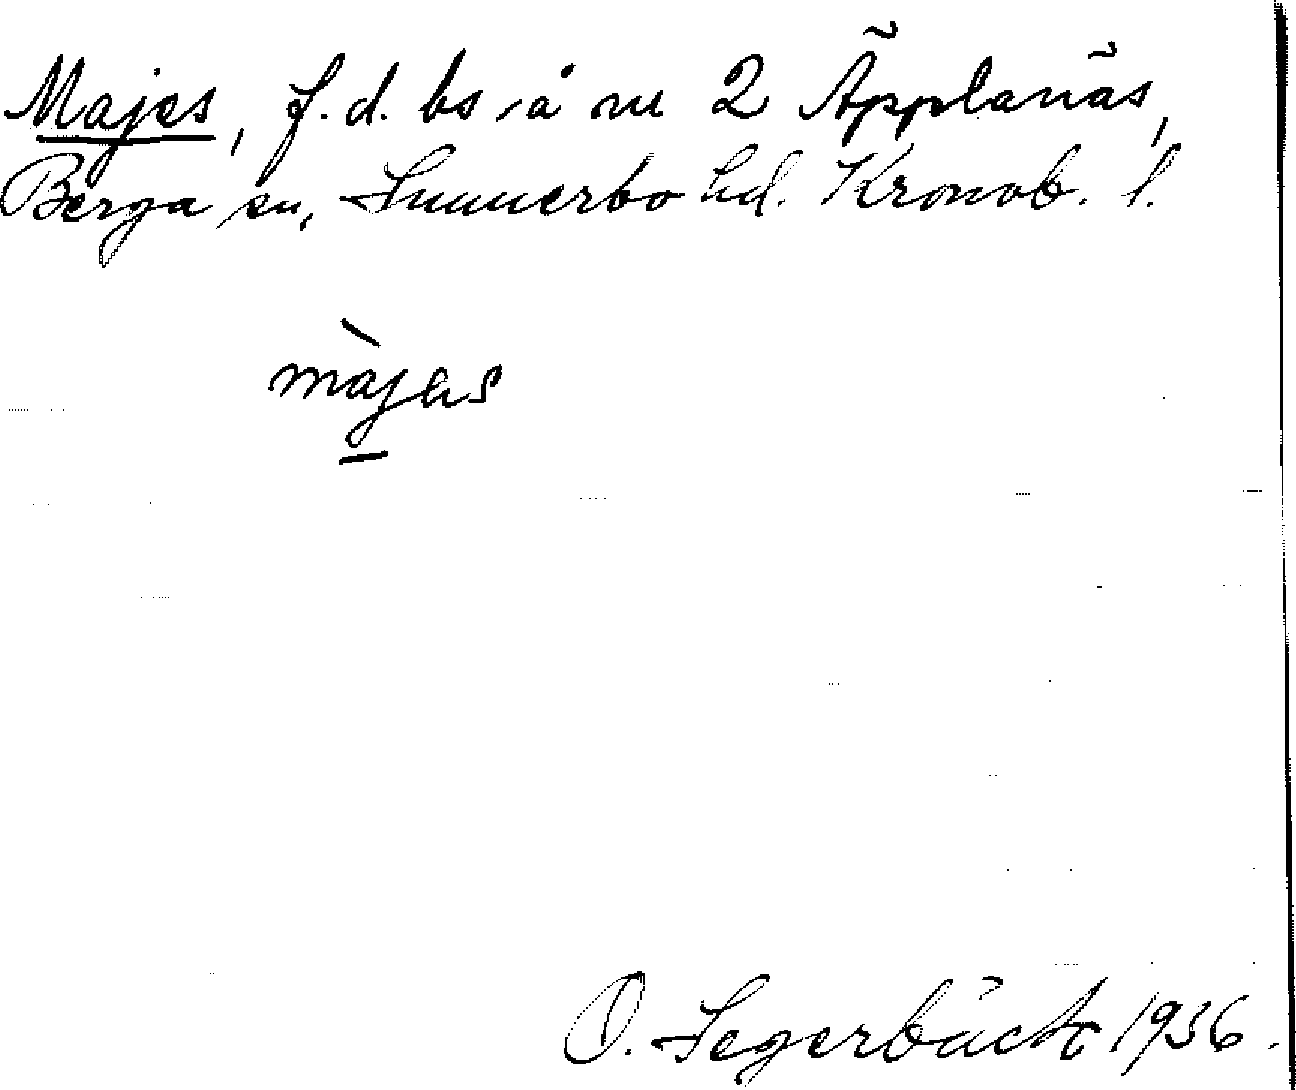 Majes, f.d. bs å nr 2 Äpplanäs,
Berga sn, Sunnerbo hd. Kronob. l.
màjes
O. Segerbäck 1936.